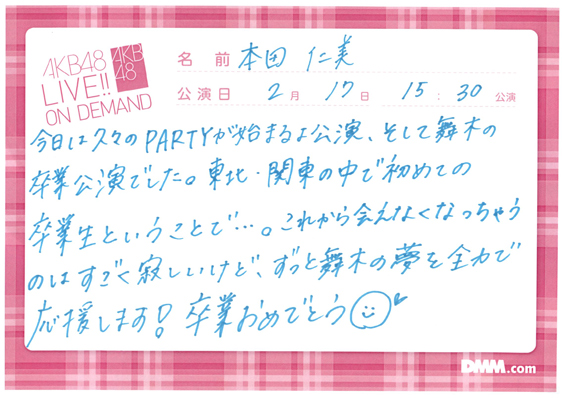 AKB48
LIVE!!
ON DEMAND
AKB
48
名前 本田 仁美
公演日 2月 17日 15:30公演
今日は久々のPARTYが始まるよ公演、そして舞木の
卒業公演でした。東北・関東の中で初めての
卒業生ということで…。これから会えなくなっちゃう
のはすごく寂しいけど、ずっと舞木の夢を全力で
応援します! 卒業おめでとう
DMM.com